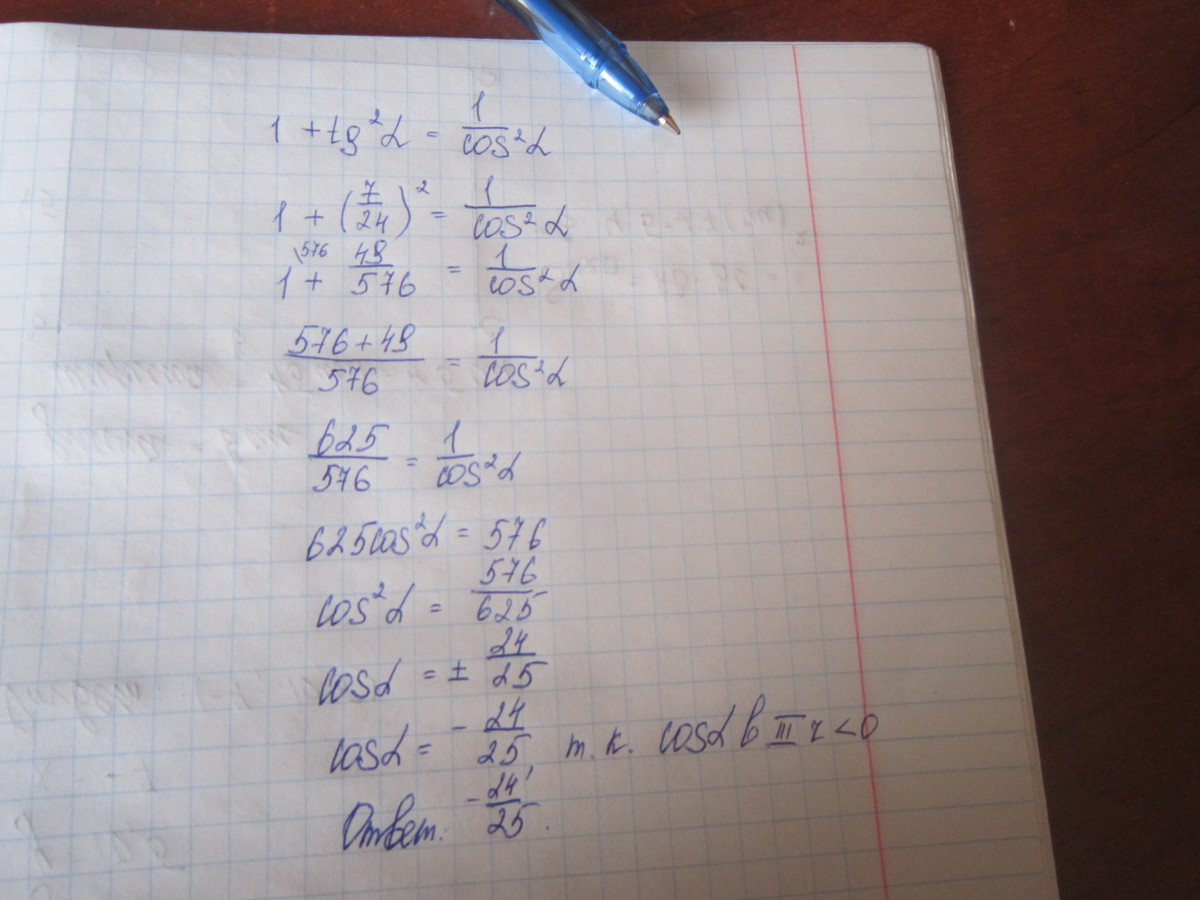 1 + tg²α = 1/cos²α
1 + (7/24)² = 1/cos²α
1\576 + 49/576 = 1/cos²α
576+49/576 = 1/cos²α
625/576 = 1/cos²α
625cos²α = 576
cos²α = 576/625
cosα = ± 24/25
cosα = -24/25, т.к. cosα в III ч <0
Ответ: -24/25.